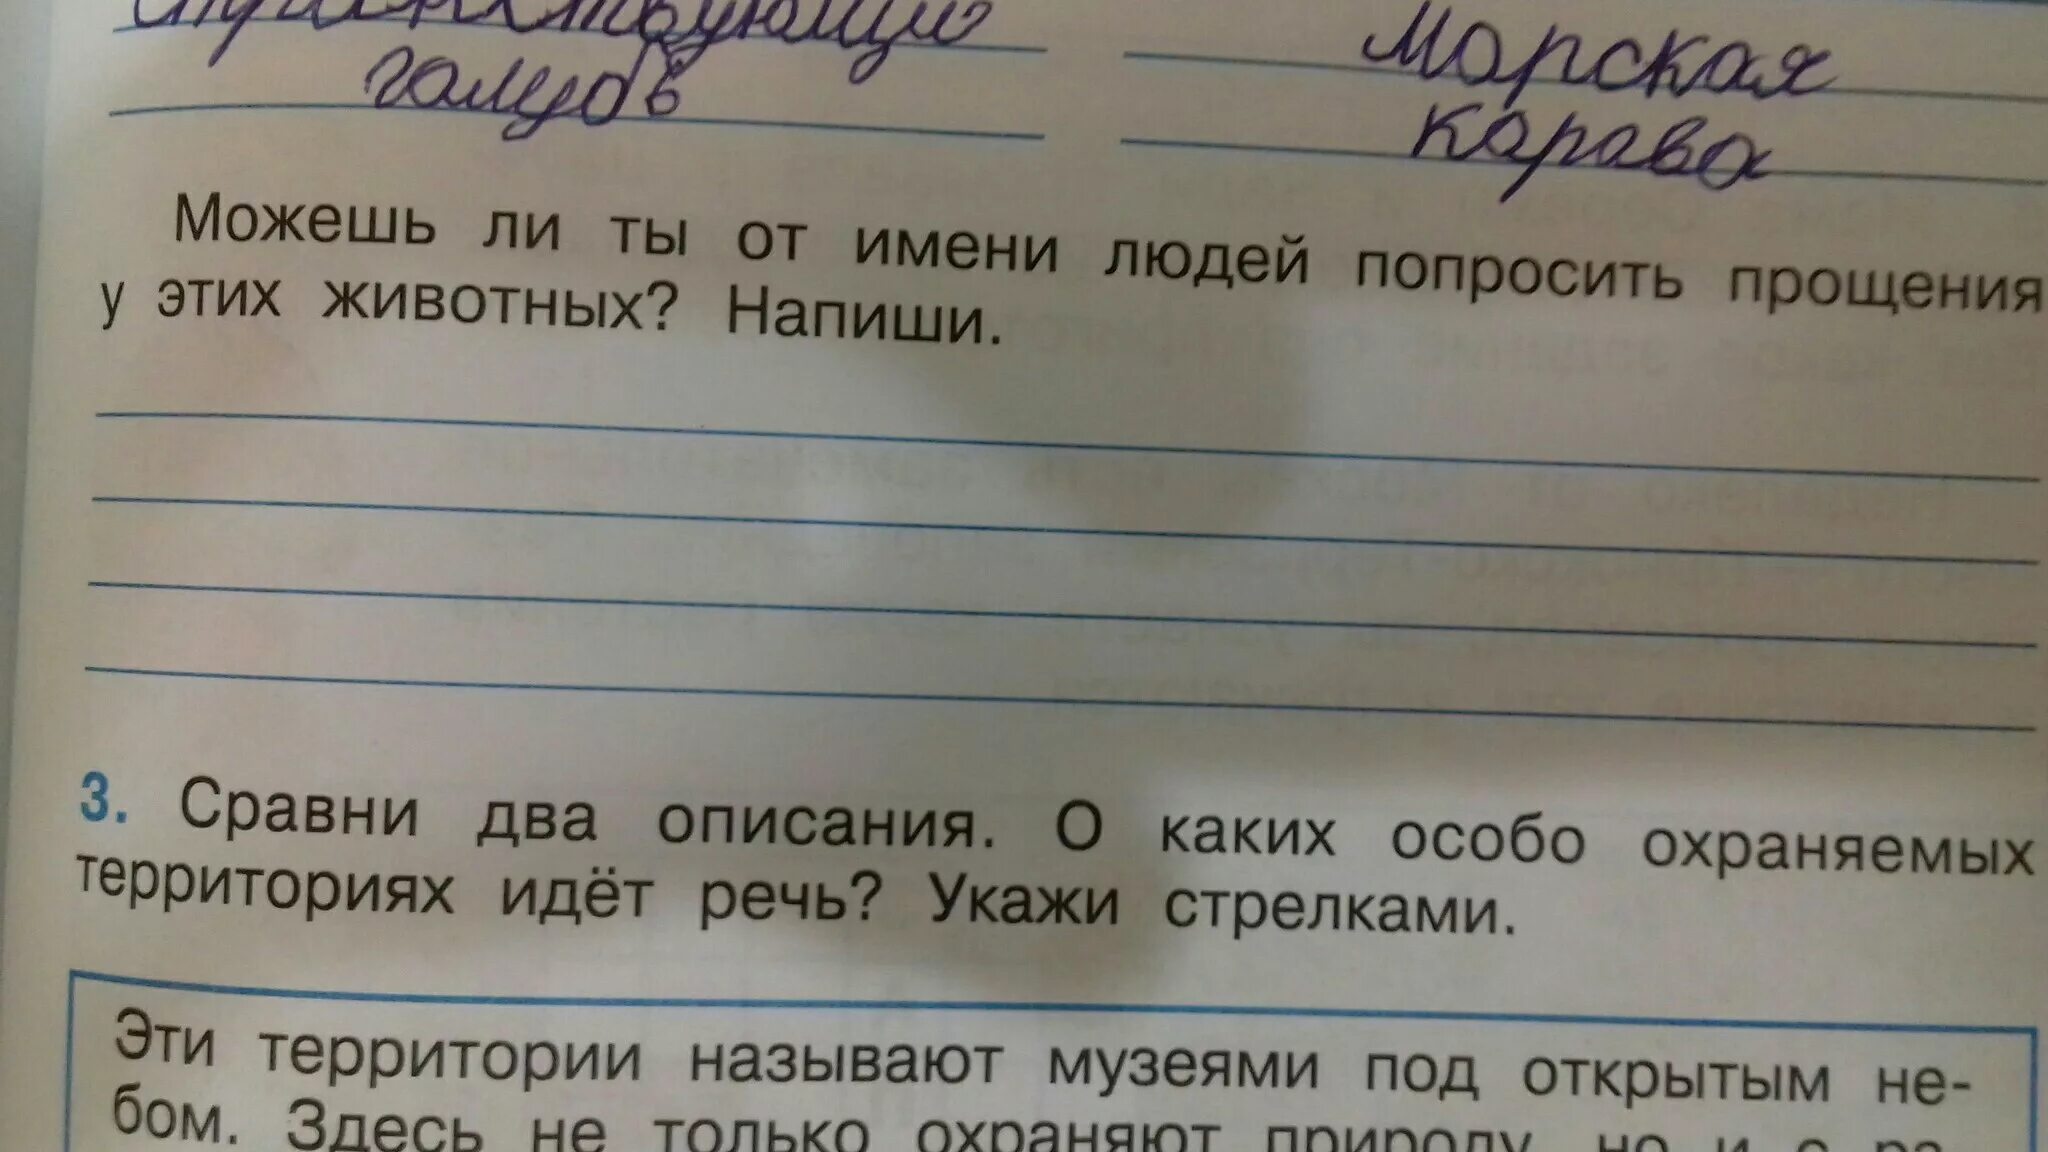 странствующий
Морская
голубь
карава
Можешь ли ты от имени людей попросить прощения
у этих животных? Напиши.
3. Сравни два описания. О каких особо охраняемых
территориях идёт речь? Укажи стрелками.
Эти территории называют музеями под открытым не-
бом. Здесь не только охраняют природу, но и с ра-